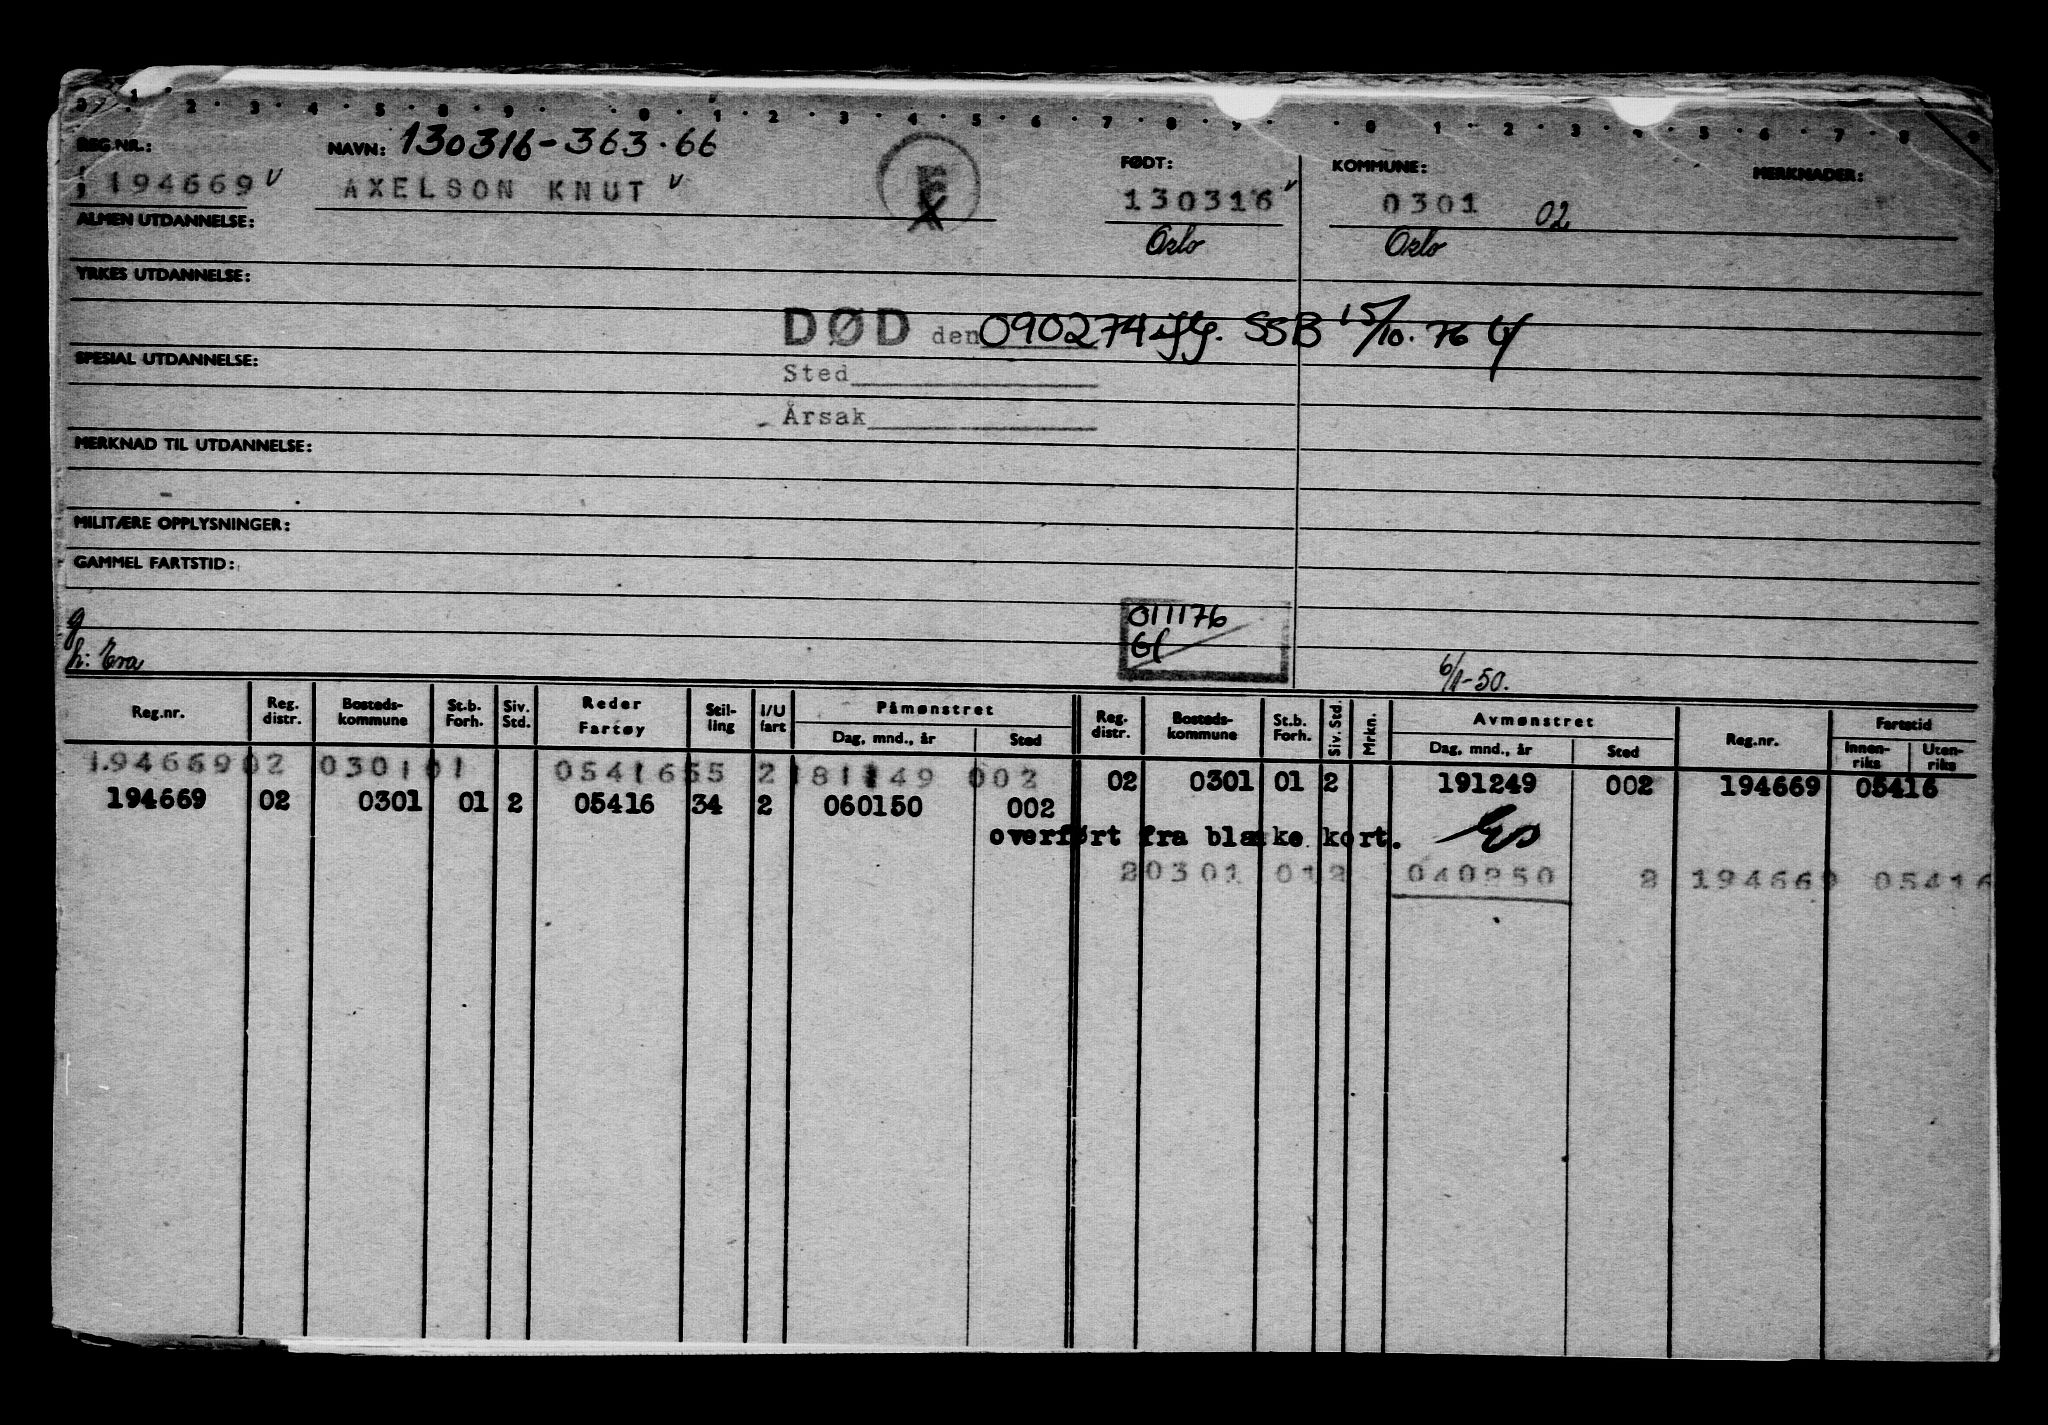 0 · 1 · 2 · 3 · 4 · 5 · 8 · 9 · 0 · 1 · 2 · 3 · 4 · 5 · 6 · 7 · 8 · 9 · 0 · 1 · 2 · 3 · 4 · 5 · 6 · 7 · 8 · 9
REG.NR.: NAVN: 130316-363.66 FØDT: KOMMUNE: MERKNADER:
194669 v AXELSON KNUT v 130316 v 0301 02
ALMEN UTDANNELSE: Oslo Oslo
YRKES UTDANNELSE:
DØD den 090274 iflg. SSB 15/10. 76
SPESIAL UTDANNELSE: Sted
Årsak
MERKNAD TIL UTDANNELSE:
MILITÆRE OPPLYSNINGER:
GAMMEL FARTSTID:
g 011176
h: Eva 6/1-50.
Reg.nr. Reg. distr. Bosteds-kommune St.b. Forh. Siv. Std. Reder Fartøy Stil-ling I/U fart Påmønstret Dag, mnd., år Sted Reg. distr. Bosteds-kommune St.b. Forh. Siv. Std. Mrkn. Avmønstret Dag, mnd., år Sted Reg.nr. Fartstid Innen-riks Uten-riks
194669 02 0301 01 05416 55 2 181149 002 02 0301 01 2 191249 002 194669 05416
194669 02 0301 01 2 05416 34 2 060150 002
overført fra blanke kort.
2 0301 01 2 040250 2 194669 05416